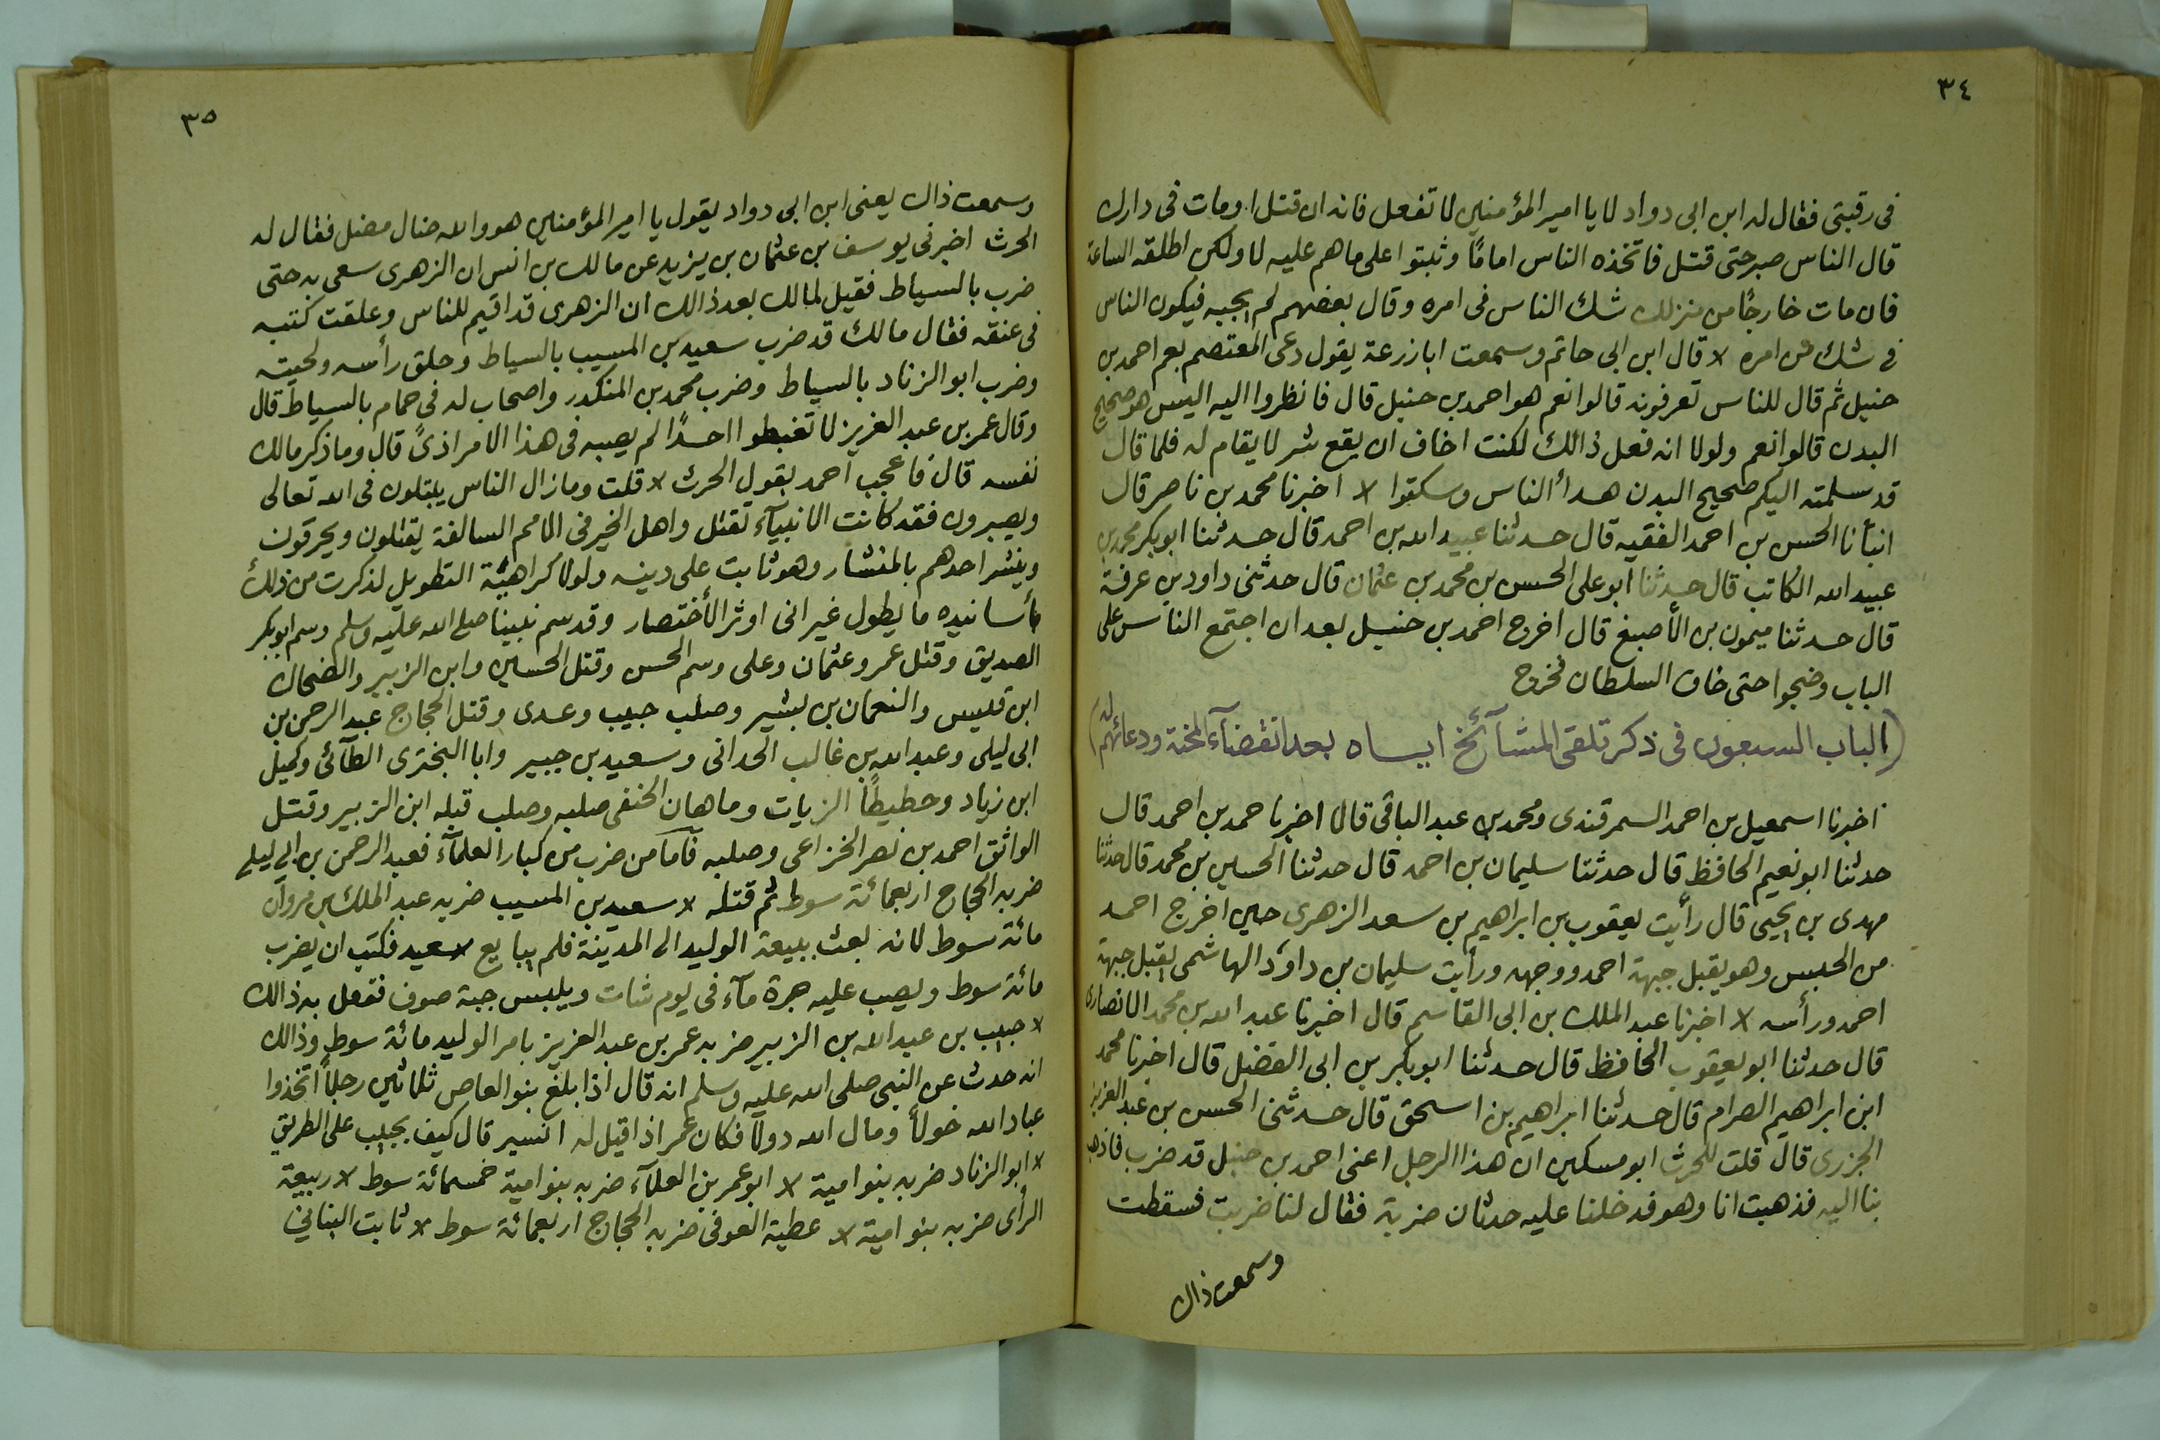 ٣٤
فى رقبتى فقال له ابن ابى دواد لا يا امير المؤمنين لا تفعل فانه ان قتل او مات فى دارك
قال الناس صبر حتى قتل فاتخذه الناس امامًا وثبتوا على ماهم عليه لا ولكن اطلقه الساعة
فان مات خارجًا من منزلك شك الناس فى امره وقال بعضهم لم يجبه فيكون الناس
فى شك من امره لا قال ابن ابى حاتم وسمعت ابا زرعة يقول دعى المعتصم بعم احمد بن
حنبل ثم قال للناس تعرفونه قالوا نعم هو احمد بن حنبل قال فانظروا اليه اليس هو صحيح
البدن قالوا نعم ولولا انه فعل ذالك لكنت اخاف ان يقع شر لا يقام له فلما قال
قد سلمته اليكم صحيح البدن هدأ الناس وسكتوا لا اخبرنا محمد بن ناصر قال
انبأنا الحسن بن احمد الفقيه قال حدثنا عبيد الله بن احمد قال حدثنا ابو بكر محمد بن
عبيد الله الكاتب قال حدثنا ابو على الحسن بن محمد بن عثمان قال حدثنى داود بن عرفة
قال حدثنا ميمون بن الأصبغ قال اخرج احمد بن حنبل بعد ان اجتمع الناس على
الباب وضجوا حتى خاف السلطان فخرج
(الباب السبعون فى ذكر تلقى المشآئخ اياه بعد انقضآء المحنة ودعائهم له)
اخبرنا اسمعيل بن احمد السمرقندى ومحمد بن عبد الباقى قالا اخبرنا حمد بن احمد قال
حدثنا ابو نعيم الحافظ قال حدثنا سليمان بن احمد قال حدثنا الحسين بن محمد قال حدثنا
مهدى بن يحيى قال رأيت يعقوب بن ابراهيم بن سعد الزهرى حين اخرج احمد
من الحبس وهو يقبل جبهة احمد ووجهه ورأيت سليمان بن داؤد الهاشمى يقبل جبهة
احمد ورأسه لا اخبرنا عبد الملك بن ابى القاسم قال اخبرنا عبد الله بن محمد الانصارى
قال حدثنا ابو يعقوب الحافظ قال حدثنا ابو بكر بن ابى الفضل قال اخبرنا محمد
ابن ابراهيم الصرام قال حدثنا ابراهيم بن اسحق قال حدثنى الحسن بن عبد العزيز
الجزرى قال قلت للحرث ابو مسكين ان هذا الرجل اعنى احمد بن حنبل قد ضرب فاذهب
بنا اليه فذهبت انا وهو فدخلنا عليه حدثان ضربة فقال لنا ضربت فسقطت
وسمعت ذاك
٣٥
وسمعت ذاك يعنى ابن ابى دواد يقول يا امير المؤمنين هو والله ضال مضل فقال له
الحرث اخبرنى يوسف بن عثمان بن يزيد عن مالك بن انس ان الزهرى سعى به حتى
ضرب بالسياط فقيل لمالك بعد ذالك ان الزهرى قد اقيم للناس وعلقت كتبه
فى عنقه فقال مالك قد ضرب سعيد بن المسيب بالسياط وحلق رأسه ولحيته
وضرب ابو الزناد بالسياط وضرب محمد بن المنكدر واصحاب له فى حمام بالسياط قال
وقال عمر بن عبد العزيز لا تغبطوا احدًا لم يصبه فى هذا الامر اذىً قال وما ذكر مالك
نفسه قال فاعجب احمد بقول الحرث لا قلت وما زال الناس يبتلون فى الله تعالى
ويصبرون فقد كانت الانبيآء تقتل واهل الخير فى الامم السالفة يقتلون ويحرقون
وينشر احدهم بالمنشار وهو ثابت على دينه ولولا كراهيئة التطويل لذكرت من ذلك
بأسانيده ما يطول غير انى اوثر الأختصار وقد سم نبينا صلى الله عليه وسلم وسم ابو بكر
الصديق وقتل عمر وعثمان وعلى وسم الحسن وقتل الحسين وابن الزبير والضحاك
ابن قليس والنعمان بن بشير وصلب خبيب وعدى وقتل الحجاج عبد الرحمن بن
ابى ليلى وعبد الله بن غالب الحدانى وسعيد بن جبير وابا البخترى الطآئى وكميل
ابن زياد وحطيطًا الزيات وماهان الحنفى صلبه وصلب قبله ابن الزبير وقتل
الواثق احمد بن نصر الخزاعى وصلبه فآما من ضرب من كبار العلمآء فعبد الرحمن بن ابى ليلى
ضربه الحجاج اربعمائة سوط ثم قتله لا سعيد بن المسيب ضربه عبد الملك بن مروان
مائة سوط لانه بعث ببيعة الوليد الى المدينة فلم يبايع سعيد فكتب ان يضرب
مائة سوط ويصب عليه جرة مآء فى يوم شات ويلبس جبة صوف ففعل به ذالك
لا خبيب بن عبد الله بن الزبير ضربه عمر بن عبد العزيز بامر الوليد مائة سوط وذالك
انه حدث عن النبى صلى الله عليه وسلم انه قال اذا بلغ بنو العاص ثلاثين رجلاً اتخذوا
عباد الله خولاً ومال الله دولاً فكان عمر اذا قيل له انسير قال كيف بخبيب على الطريق
لا ابو الزناد ضربه بنو امية لا ابو عمر بن العلآء ضربه بنو امية خمسمائة سوط لا ربيعة
الرأى ضربه بنو امية لا عطية العوفى ضربه الحجاج اربعمائة سوط لا ثابت البنانى